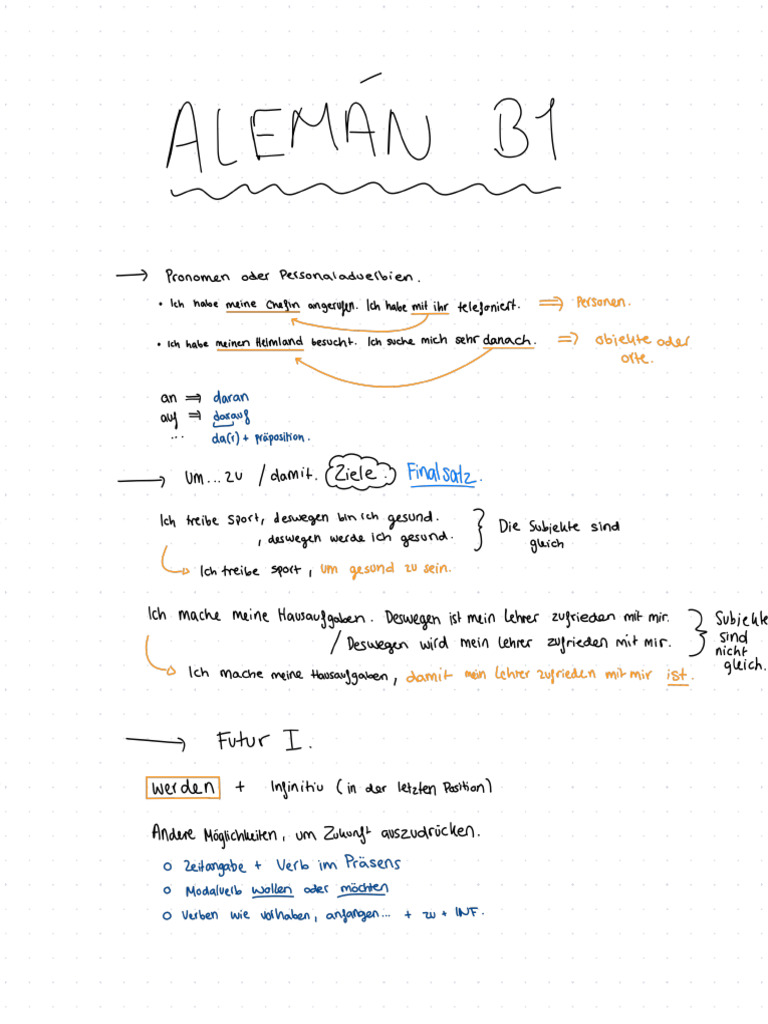 ALEMÁN B1
→ Pronomen oder Personaladverbien.
• Ich habe meine Chefin angerufen. Ich habe mit ihr telefoniert. ⇒ Personen.
• Ich habe meinen Heimland besucht. Ich suche mich sehr danach. ⇒ Objekte oder
orte.
an ⇒ daran
auf ⇒ darauf
... da(r) + präposition.
→ Um...zu / damit. Ziele. Finalsatz.
Ich treibe sport, deswegen bin ich gesund.
, deswegen werde ich gesund.
Die Subjekte sind
gleich
Ich treibe sport, um gesund zu sein.
Ich mache meine Hausaufgaben. Deswegen ist mein Lehrer zufrieden mit mir.
/ Deswegen wird mein Lehrer zufrieden mit mir.
Subjekte
sind
nicht
gleich.
Ich mache meine Hausaufgaben, damit mein Lehrer zufrieden mit mir ist.
→ Futur I.
werden + Infinitiv (in der letzten Position)
Andere Möglichkeiten, um Zukunft auszudrücken.
○ Zeitangabe + Verb im Präsens
○ Modalverb wollen oder möchten
○ Verben wie vorhaben, anfangen... + zu + INF.